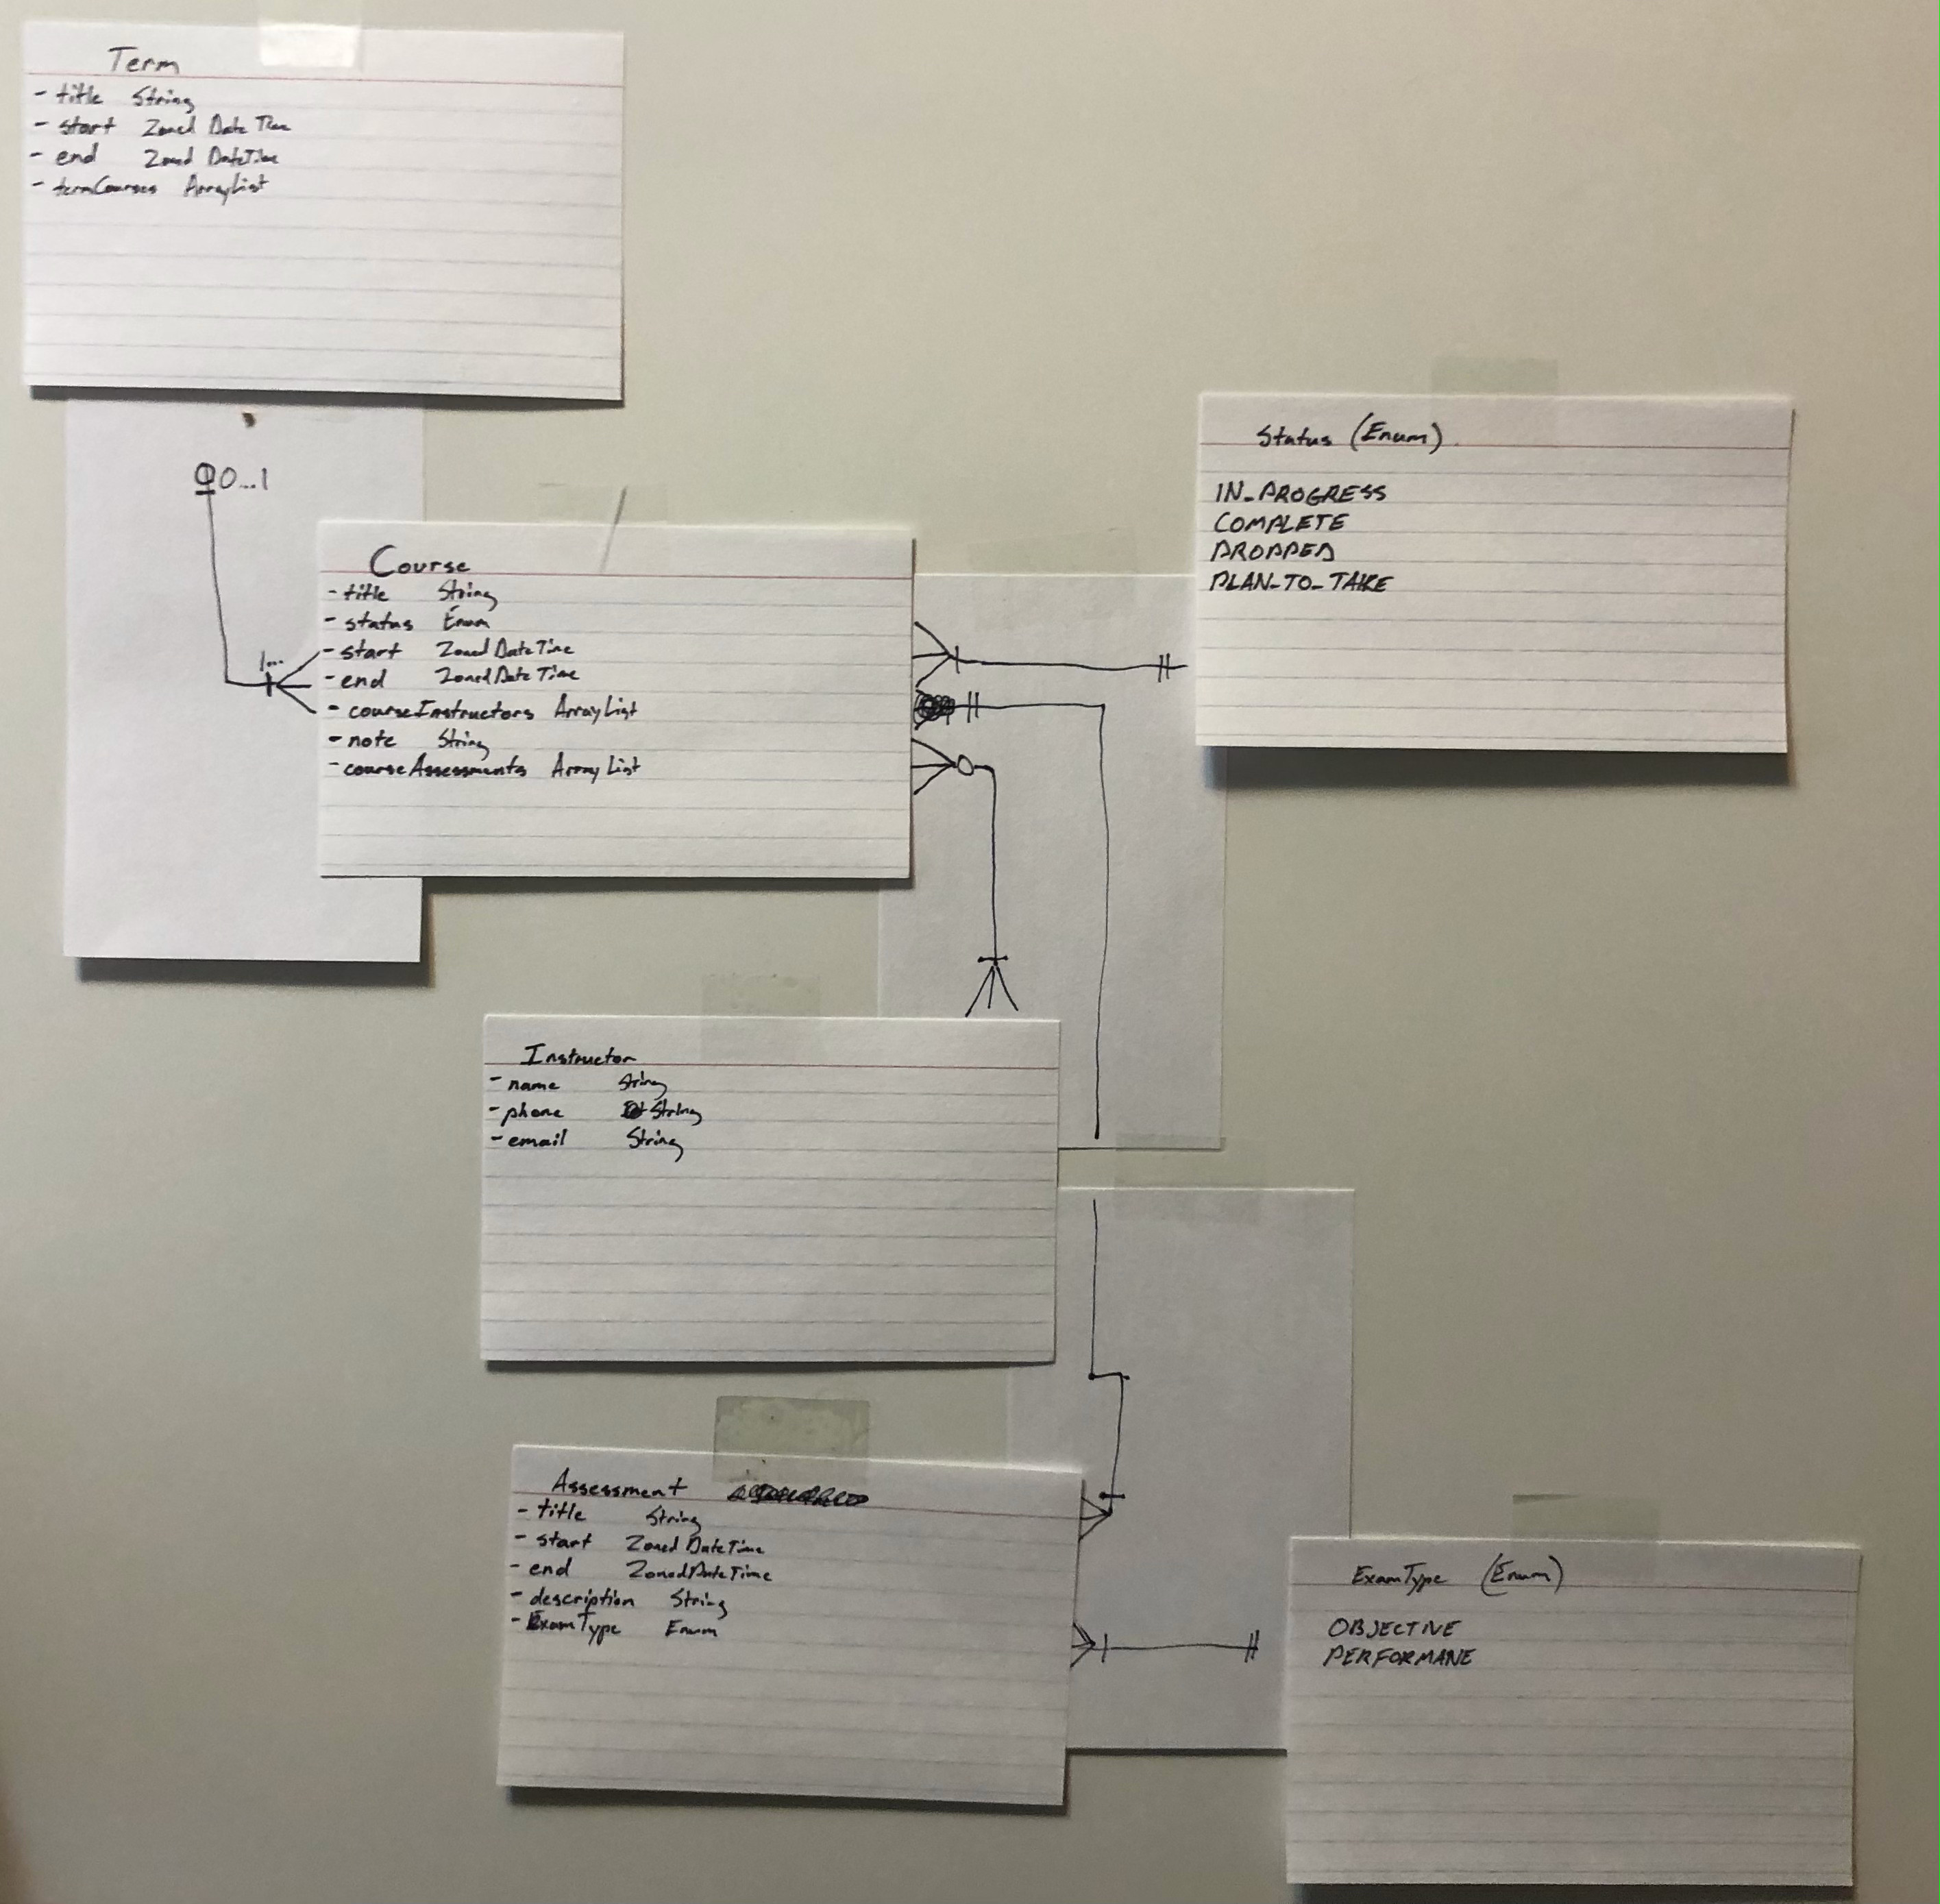 Term
- title String
- start Zoned Date Time
- end Zoned DateTime
- termCourses ArrayList
0...1
1...
Course
- title String
- status Enum
- start ZonedDateTime
- end ZonedDateTime
- courseInstructors ArrayList
- note String
- courseAssessments ArrayList
Status (Enum)
IN_PROGRESS
COMPLETE
DROPPED
PLAN_TO_TAKE
Instructor
- name String
- phone String
- email String
Assessment
- title String
- start ZonedDateTime
- end ZonedDateTime
- description String
- ExamType Enum
ExamType (Enum)
OBJECTIVE
PERFORMANE